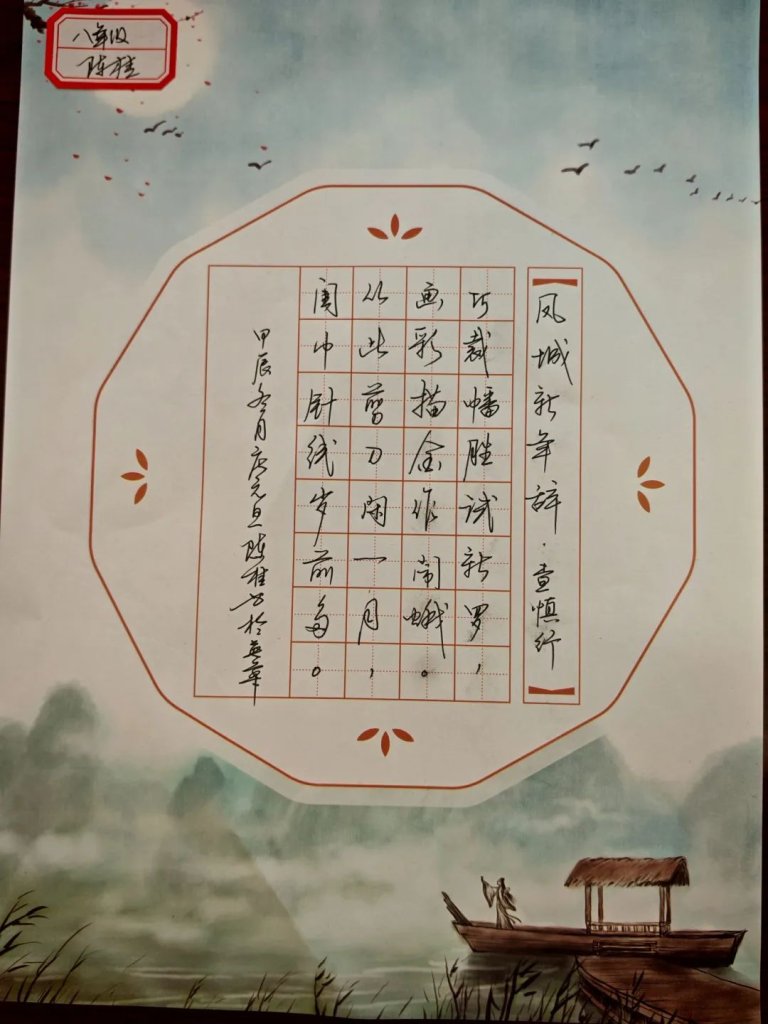 八年级
陈桂
【凤城新年辞·查慎行】
巧裁幡胜试新罗，
画彩描金作闹蛾。
从此剪刀闲一月，
闺中针线岁前多。
甲辰冬月庆元旦陈桂书於英